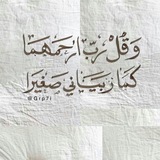 وَقُلْ رَبِّ ارْحَمْهُمَا
كَمَا رَبَّيَانِي صَغِيرًا
@Qrp7i